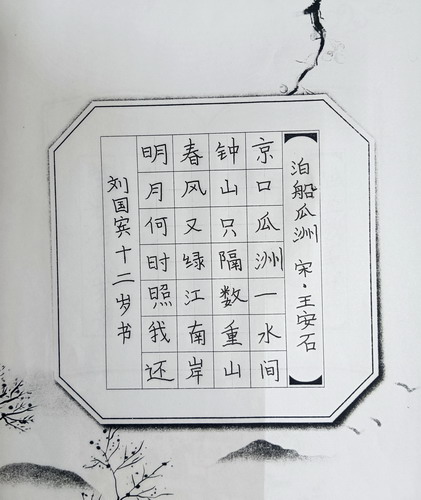 泊船瓜洲 宋·王安石
京口瓜洲一水间
钟山只隔数重山
春风又绿江南岸
明月何时照我还
刘国宾十二岁书